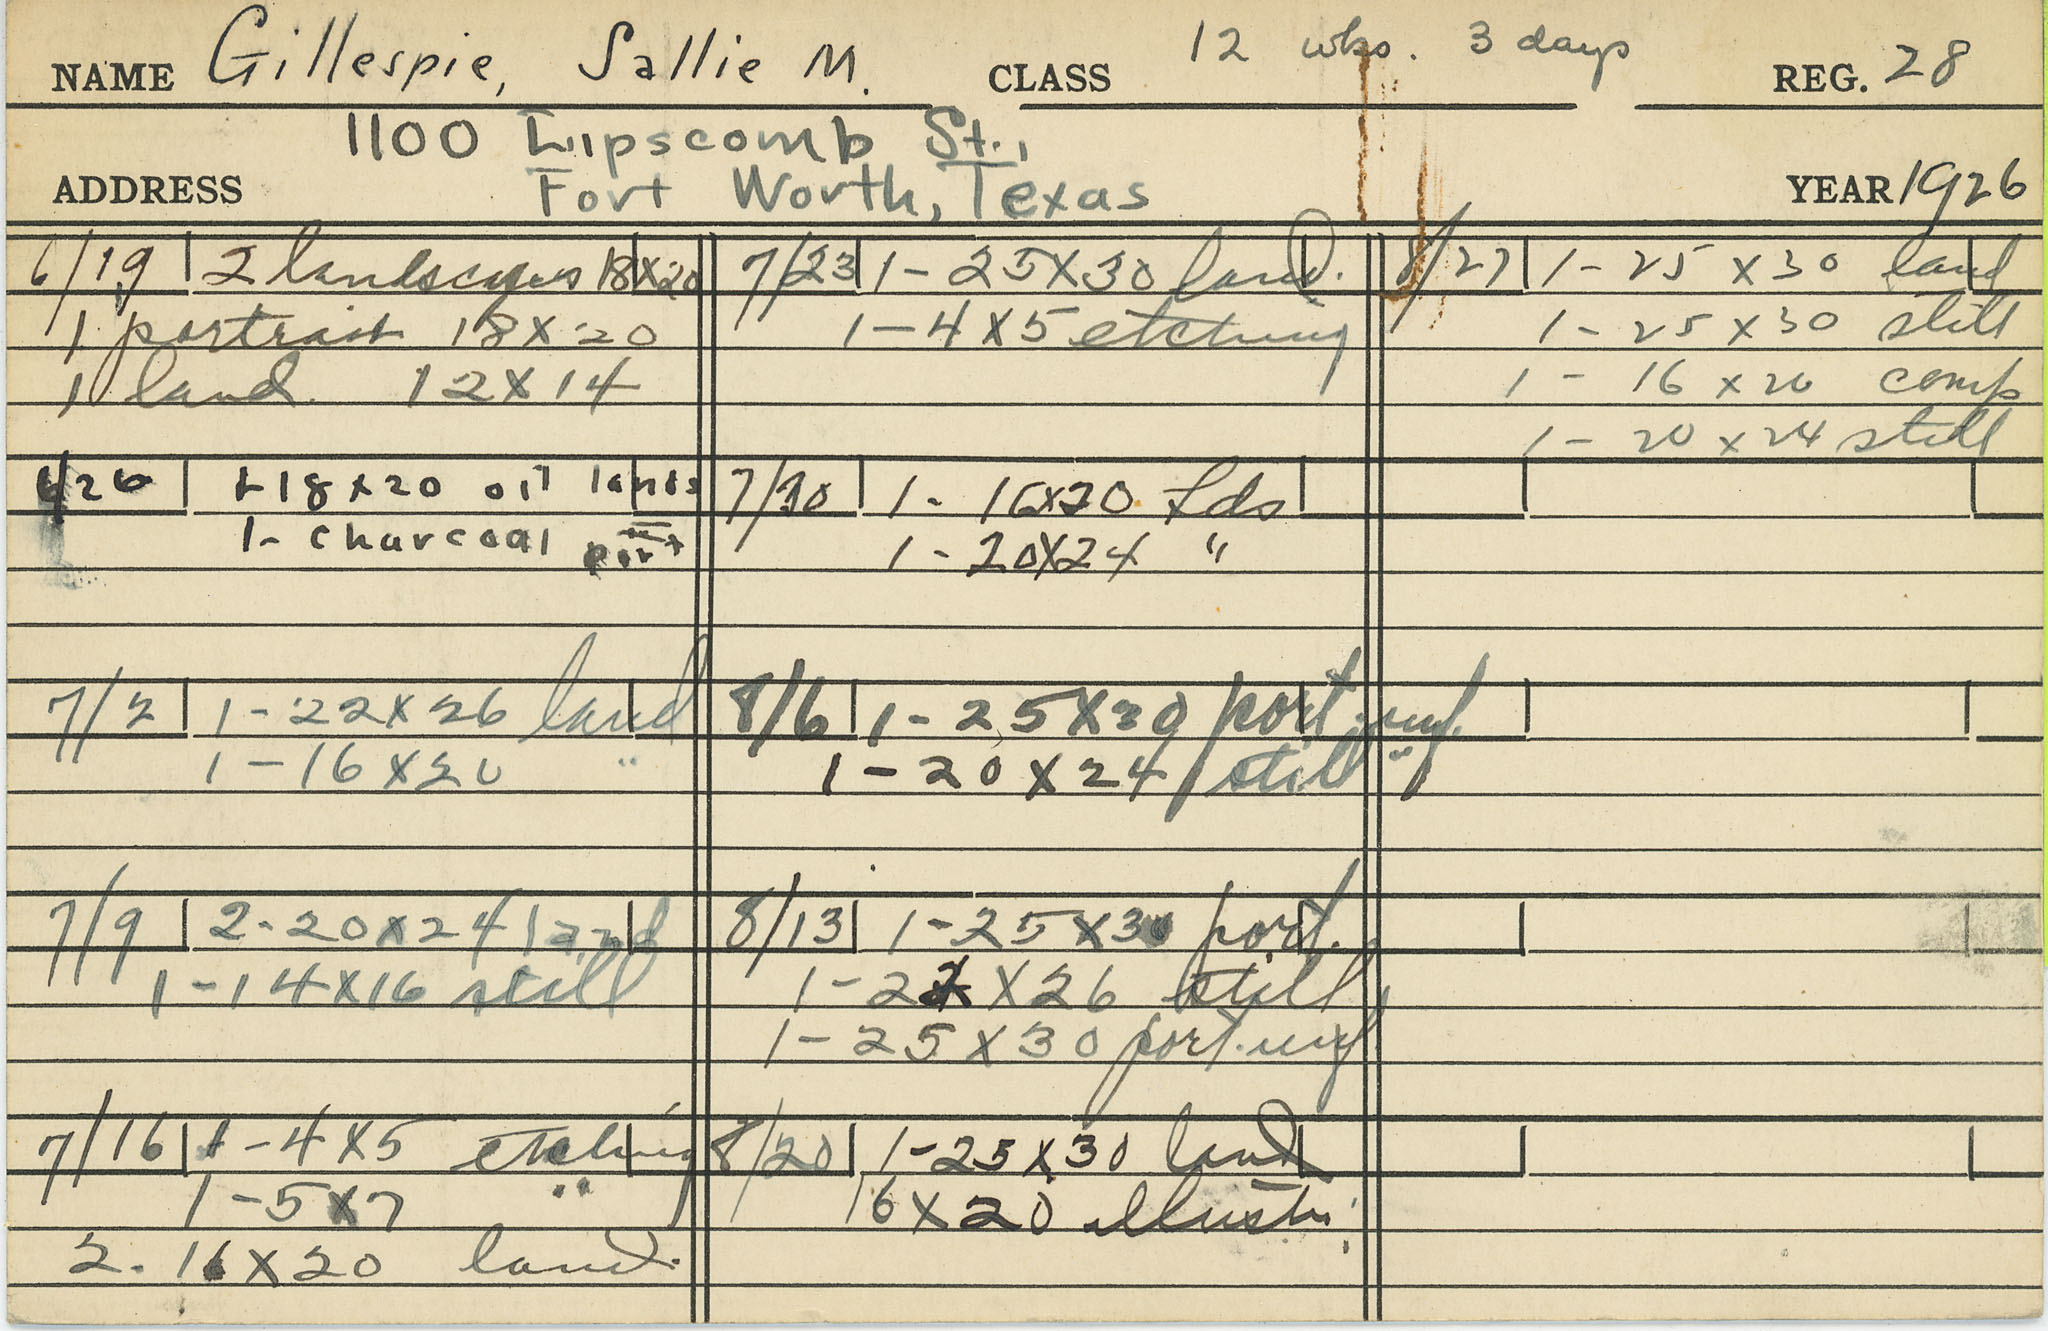 NAME Gillespie, Sallie M. CLASS 12 wks. 3 days REG. 28
1100 Lipscomb St.,
ADDRESS Fort Worth, Texas YEAR 1926
6/19 2 landscapes 18x20
1 portrait 18x20
1 land. 12x14
6/26 1-18x20 oil lands
1- charcoal port
7/2 1-22x26 land
1-16x20 "
7/9 2-20x24 land
1-14x16 still
7/16 1-4x5 etching
1-5x7 "
2. 16x20 land.
7/23 1-25x30 land.
1-4x5 etching
7/30 1- 16x20 Lds
1-20x24 "
8/6 1-25x30 port. unf.
1-20x24 still "
8/13 1-25x30 port.
1-22x26 still
1-25x30 port. unf.
8/20 1-25x30 land
16x20 illustr.
8/27 1-25x30 land
1-25x30 still
1-16x20 comp
1-20x24 still